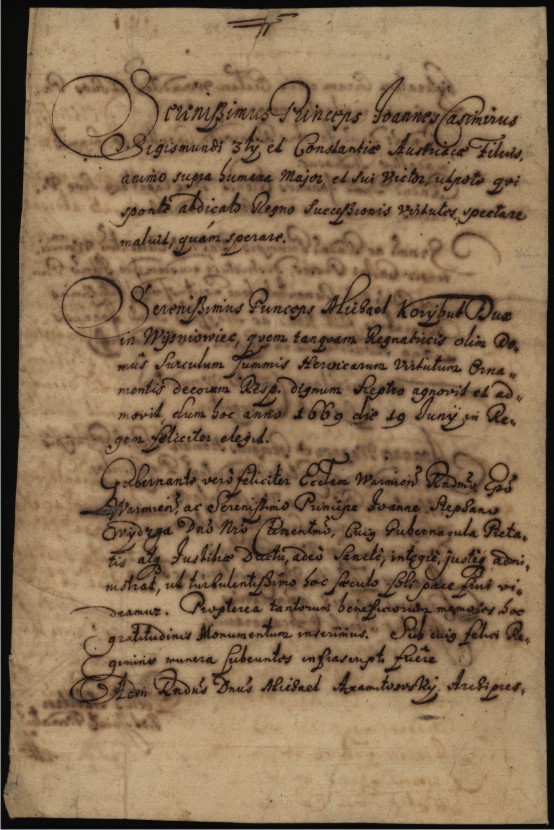 Serenissimus Princeps Joannes Casimirus
Sigismundi 3tij et Constantiæ Austriacæ Filius,
animo supra humana Major, et sui Victor, utpote qvi
sponte abdicato Regno Successionis Virtutes, spectare
maluit, quám sperare.
Serenissimus Princeps Michael Korybut Dux
in Wysniowiec, qvem tanqvam Regnatricis olim Do,
mûs Surculum Summis Heroicarum Virtutum Orna-
mentis decorum Resp. dignum Sceptro agnovit et ad-
movit, dum hoc anno 1669 die 19 Junij in Re-
gem feliciter elegit.
Gubernante verò feliciter Eccle͞m Warmien͞ R͞ndmus E͞po
Warmien͞, ac Serenissimo Principe Joanne Stephano
Wydzga D͞no N͞ro Clementmo, Cuig Gubernacula Pieta-
tis atq Justitiæ Ductu, adeò Sanctè, integrè, justè admi-
nistrat, ut turbulentissimo hoc sæculo soli pace frui vi-
deamur. Propterea tantorum beneficiorum memores hoc
gratitudinis Monumentum inserimus. Sub cuig felici Re-
gimine munera Subeuntes infrascripti fuêre
Adm R͞ndus D͞nus Michael Archipres-